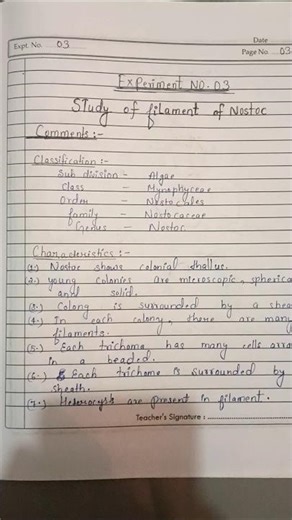 Expt. No. 03
Date
Page No. 03
Experiment NO. 03
Study of filament of Nostoc
Comments :-
Classification :-
Sub division - Algae
Class - Myxophyceae
Order - Nostocales
family - Nostocaceae
Genus - Nostoc.
Characteristics :-
(1.) Nostoc shows colonial thallus.
(2.) young colonies are microscopic, spherica
and solid.
(3.) Colony is surrounded by a shea
(4.) In each colony, there are many
filaments.
(5.) Each trichome has many cells arra
in a beaded.
(6.) Each trichome is surrounded by
sheath.
(7.) Heterocysts are present in filament.
Teacher's Signature :